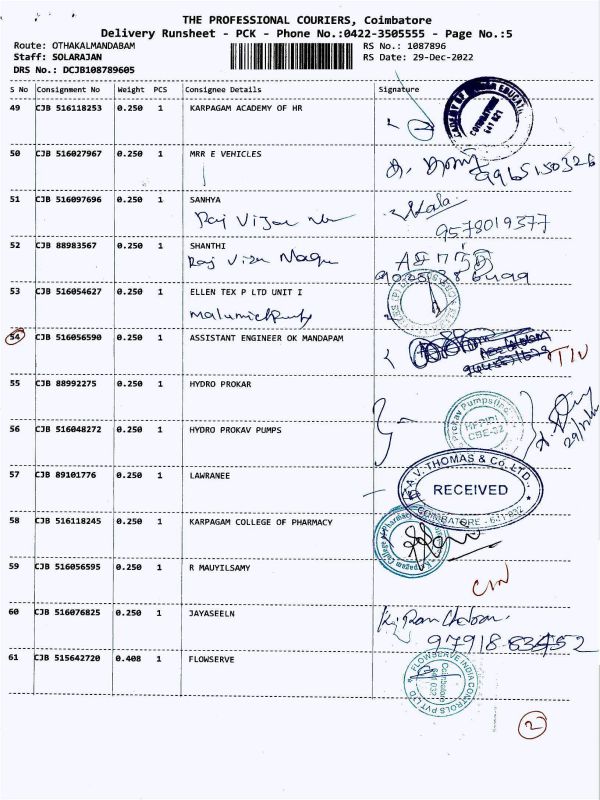 THE PROFESSIONAL COURIERS, Coimbatore
Delivery Runsheet - PCK - Phone No.:0422-3505555 - Page No.:5
Route: OTHAKALMANDABAM
RS No.: 1087896
Staff: SOLARAJAN
RS Date: 29-Dec-2022
DRS No.: DCJB108789605
S No Consignment No Weight PCS Consignee Details Signature
49 CJB 516118253 0.250 1 KARPAGAM ACADEMY OF HR
50 CJB 516027967 0.250 1 MRR E VEHICLES
9965150326
51 CJB 516097696 0.250 1 SANHYA
Kala
Raj Vijai
9578019377
52 CJB 88983567 0.250 1 SHANTHI
Raj Vijai Nagar
53 CJB 516054627 0.250 1 ELLEN TEX P LTD UNIT I
54 CJB 516056590 0.250 1 ASSISTANT ENGINEER OK MANDAPAM
55 CJB 88992275 0.250 1 HYDRO PROKAR
56 CJB 516048272 0.250 1 HYDRO PROKAV PUMPS
Prokav Pumps(Inc
CBE-32
57 CJB 89101776 0.250 1 LAWRANEE
A.V. THOMAS & Co. LTD.,
RECEIVED
COIMBATORE - 641 032
58 CJB 516118245 0.250 1 KARPAGAM COLLEGE OF PHARMACY
59 CJB 516056595 0.250 1 R MAUYILSAMY
60 CJB 516076825 0.250 1 JAYASEELN
97918 63452
61 CJB 515642720 0.408 1 FLOWSERVE
FLOWSERVE INDIA CONTROLS PVT LTD
Coimbatore
641 032
2